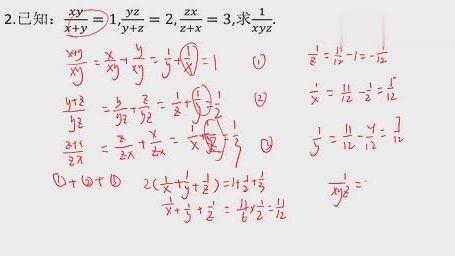 2.已知：xy/(x+y)=1,yz/(y+z)=2,zx/(z+x)=3,求1/xyz.
(x+y)/xy = x/xy + y/xy = 1/y + 1/x = 1 ①
(y+z)/yz = y/yz + z/yz = 1/z + 1/y = 1/2 ②
(z+x)/zx = z/zx + x/zx = 1/x + 1/z = 1/3 ③
①+②+③ 2(1/x+1/y+1/z)=1+1/2+1/3
1/x+1/y+1/z = 11/6×1/2=11/12
1/z = 11/12 -1=-1/12
1/x = 11/12 - 1/2 = 5/12
1/y = 11/12 - 4/12 = 7/12
1/xyz =